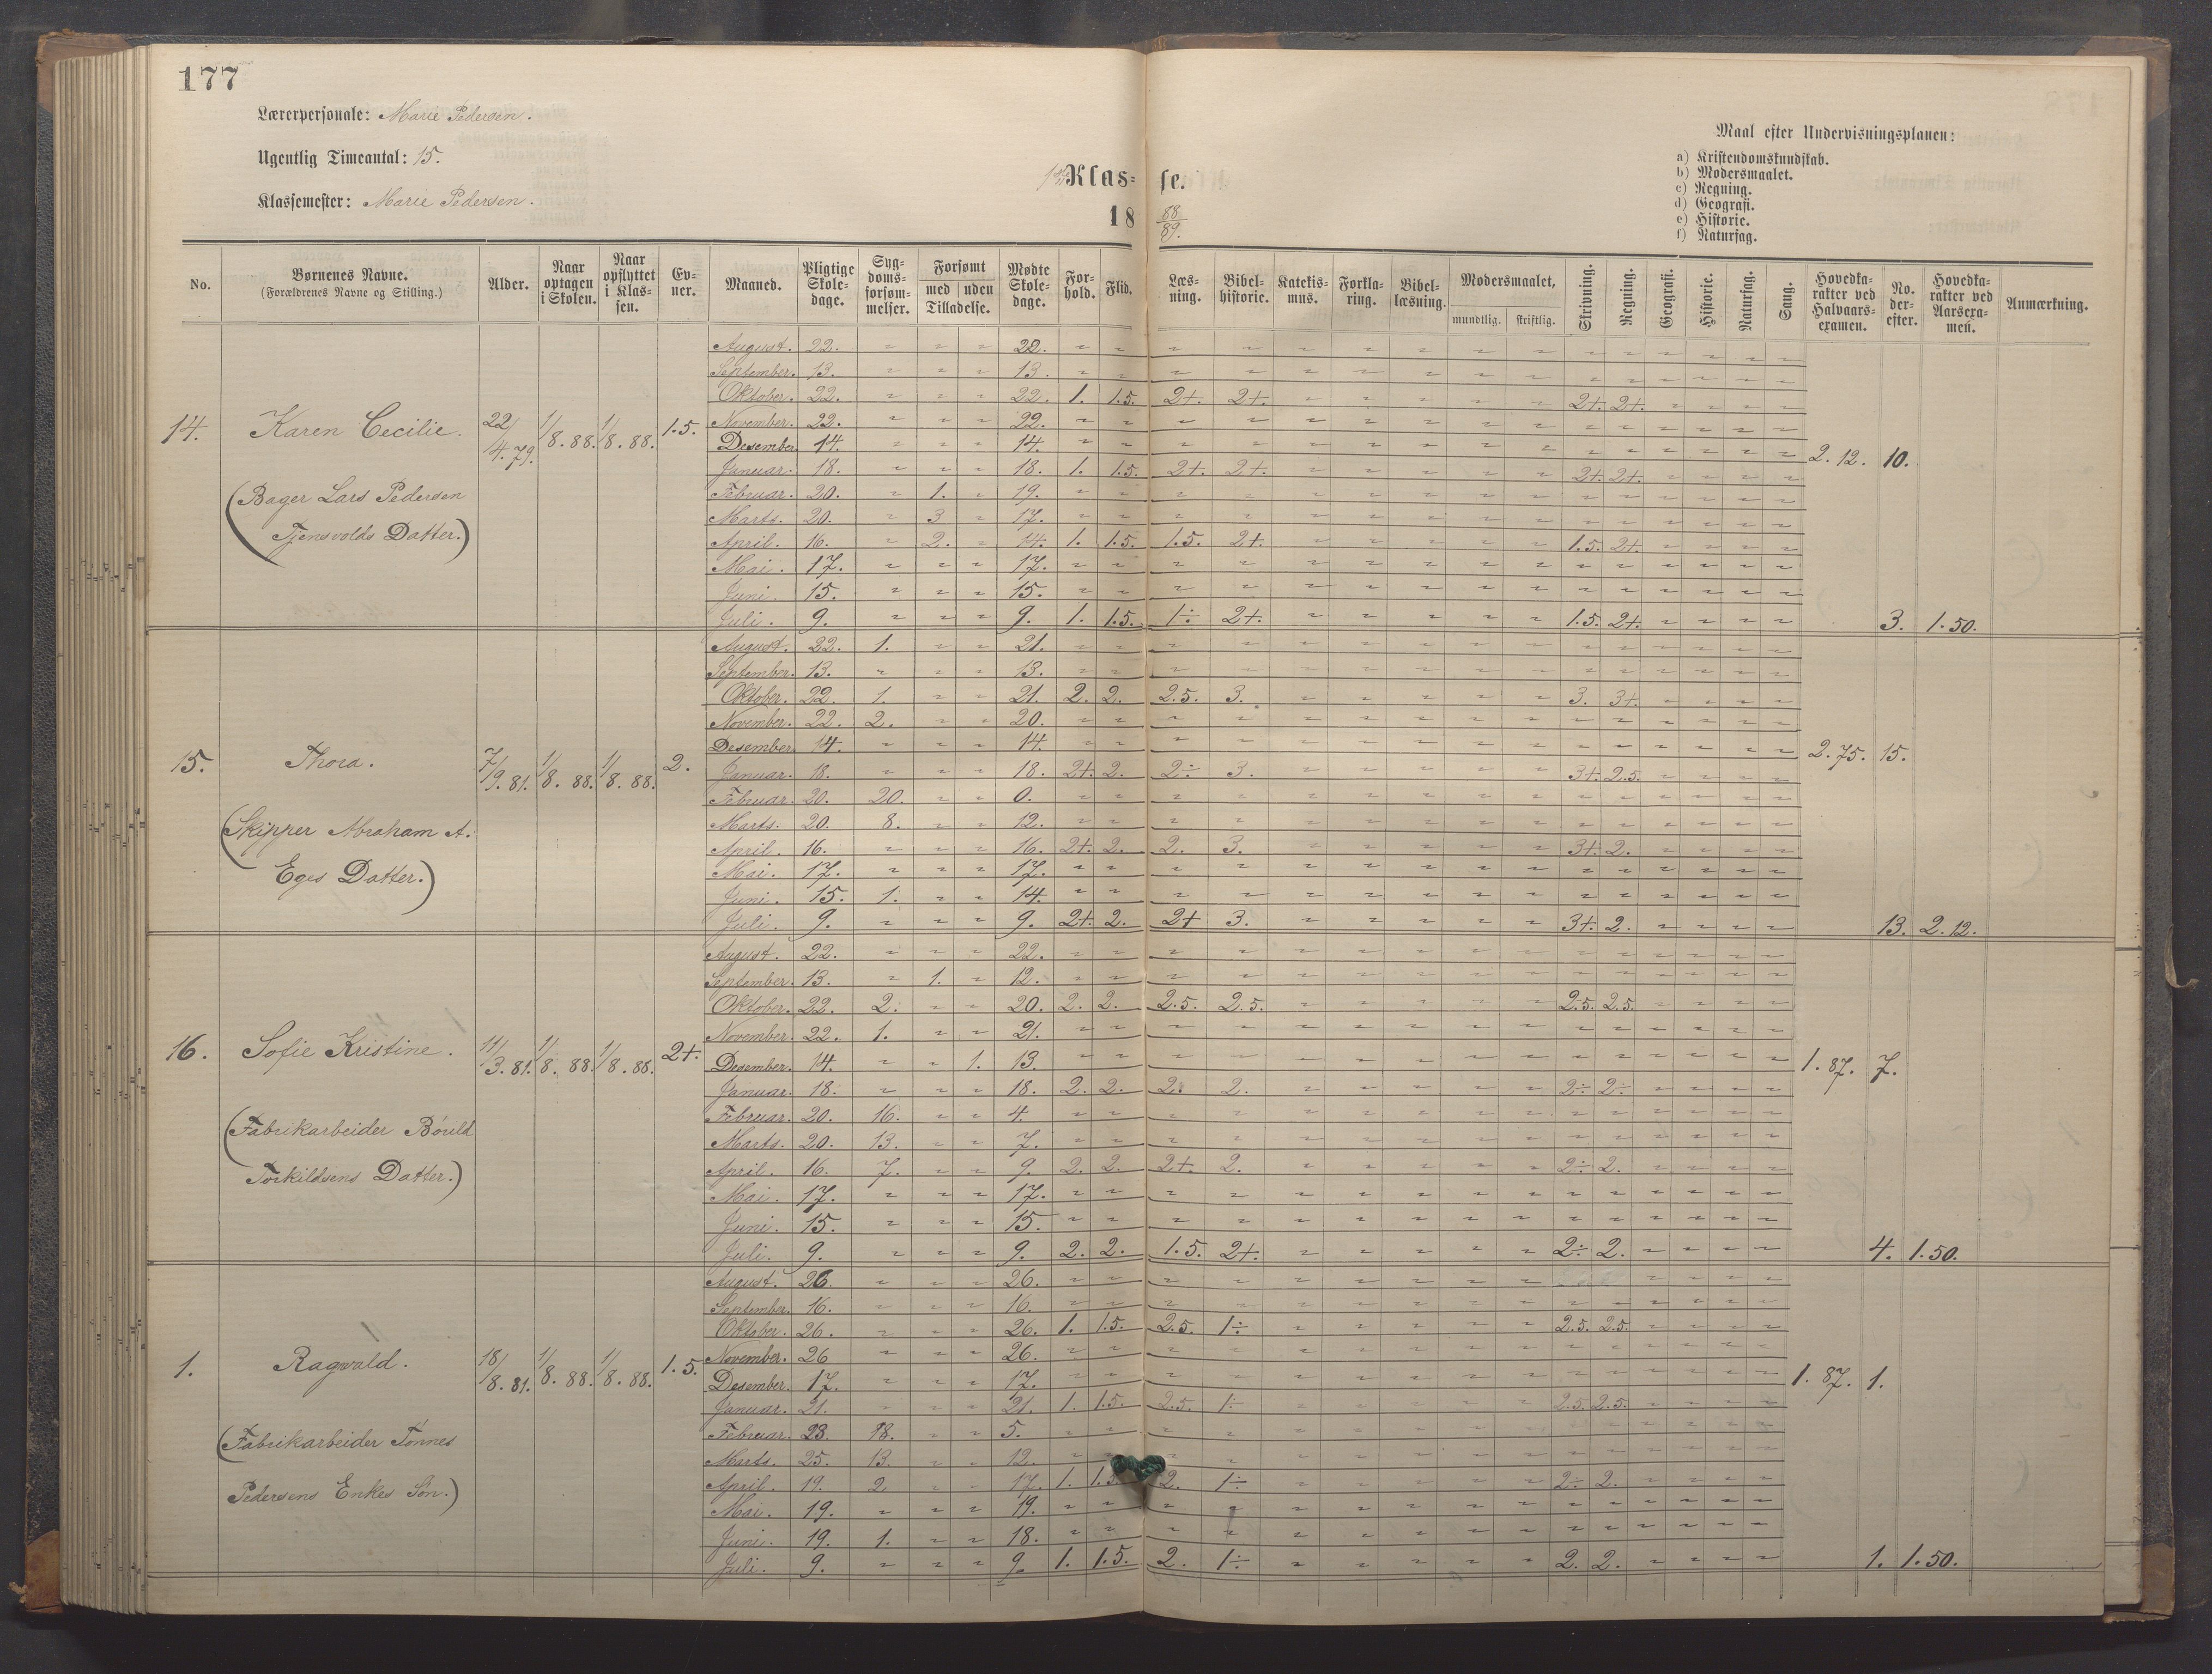 177
Lærerpersonale: Marie Pedersen.
Ugentlig Timeantal: 15.
Klassemester: Marie Pedersen.
Klas- se.
18 88/89.
Maal efter Undervisningsplanen:
a) Kristendomskundskab.
b) Modersmaalet.
c) Regning.
d) Geografi.
e) Historie.
f) Naturfag.
No. Børnenes Navne. (Forældrenes Navne og Stilling.) Alder. Naar optagen i Skolen. Naar opflyttet i Klassen. Evner. Maaned. Pligtige Skoledage. Sygdomsforsømmelser. Forsømt med uden Tilladelse. Mødte Skoledage. Forhold. Flid. Læsning. Bibelhistorie. Katekismus. Forklaring. Bibellæsning. Modersmaalet, mundtlig. skriftlig. Skrivning. Regning. Geografi. Historie. Naturfag. Sang. Hovedkarakter ved Halvaarsexamen. No. derefter. Hovedkarakter ved Aarsexamen. Anmærkning.
14. Karen Cecilie. 22/4.79. 1/8.88. 1/8.88. 1.5.
(Bager Lars Pedersen
Tjensvolds Datter.)
August. 22. " " " 22. " "
September. 13. " " " 13. " "
Oktober. 22. " " " 22. 1. 1.5. 2+. 2+. 2+. 2+.
November. 22. " " " 22. " "
Desember. 14. " " " 14. " " 2.12. 10.
Januar. 18. " " " 18. 1. 1.5. 2+. 2+. 2+. 2+.
Februar. 20. " 1. " 19. " "
Marts. 20. " 3 " 17. " "
April. 16. " 2. " 14. 1. 1.5. 1.5. 2+. 1.5. 2+.
Mai. 17. " " " 17. " "
Juni. 15. " " " 15. " "
Juli. 9. " " " 9. 1. 1.5. 1÷ 2+. 1.5. 2+. 3. 1.50.
15. Thora. 7/9.81. 1/8.88. 1/8.88. 2.
(Skipper Abraham A.
Eges Datter.)
August. 22. 1. " " 21. " "
September. 13. " " " 13. " "
Oktober. 22. 1. " " 21. 2. 2. 2.5. 3. 3. 3+.
November. 22. 2. " " 20. " "
Desember. 14. " " " 14. " " 2.75. 15.
Januar. 18. " " " 18. 2+. 2. 2÷ 3. 3+. 2.5.
Februar. 20. 20. " " 0. " "
Marts. 20. 8. " " 12. " "
April. 16. " " " 16. 2+. 2. 2. 3. 3+. 2.
Mai. 17. " " " 17. " "
Juni. 15. 1. " " 14. " "
Juli. 9. " " " 9. 2+. 2. 2+ 3. 3+. 2. 13. 2.12.
16. Sofie Kristine. 11/3.81. 1/8.88. 1/8.88. 2+.
(Fabrikarbeider Bóuld
Torkildsens Datter.)
August. 22. " " " 22. " "
September. 13. " 1. " 12. " "
Oktober. 22. 2. " " 20. 2. 2. 2.5. 2.5. 2.5. 2.5.
November. 22. 1. " " 21. " "
Desember. 14. " " 1. 13. " " 1.87. 7.
Januar. 18. " " " 18. 2. 2. 2. 2. 2÷ 2÷
Februar. 20. 16. " " 4. " "
Marts. 20. 13. " " 7. " "
April. 16. 7. " " 9. 2. 2. 2+. 2. 2÷ 2.
Mai. 17. " " " 17. " "
Juni. 15. " " " 15. " "
Juli. 9. " " " 9. 2. 2. 1.5. 2+. 2÷ 2. 4. 1.50.
1. Ragwald. 18/8.81. 1/8.88. 1/8.88. 1.5.
(Fabrikarbeider Tønnes
Pedersens Enkes Søn.)
August. 26. " " " 26. " "
September. 16. " " " 16. " "
Oktober. 26. " " " 26. 1. 1.5. 2.5. 1÷ 2.5. 2.5.
November. 26 " " " 26. " "
Desember. 17. " " " 17. " " 1.87. 1.
Januar. 21. " " " 21. 1. 1.5. 2.5. 1÷ 2.5. 2.5.
Februar. 23. 18. " " 5. " "
Marts. 25. 13. " " 12. "
April. 19. 2. " " 17. 1. 2. 1÷ 2÷ 2.
Mai. 19. " " " 19. " "
Juni. 19. 1. " " 18. " "
Juli. 9. " " " 9. 1. 1.5. 2. 1÷ 2. 2. 1. 1.50.